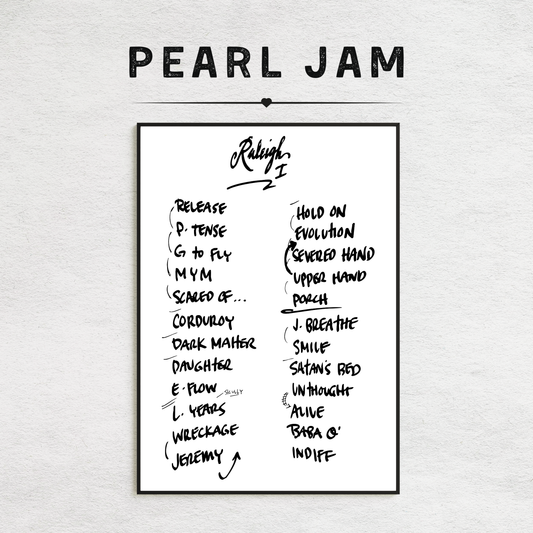 PEARL JAM
Raleigh
I
RELEASE
P. TENSE
G to FLY
MYM
SCARED OF...
CORDUROY
DARK MATTER
DAUGHTER
E. FLOW
L. YEARS
WRECKAGE
JEREMY
HOLD ON
EVOLUTION
SEVERED HAND
UPPER HAND
PORCH
J. BREATHE
SMILE
SATAN'S BED
UNTHOUGHT
ALIVE
BABA O'
INDIFF